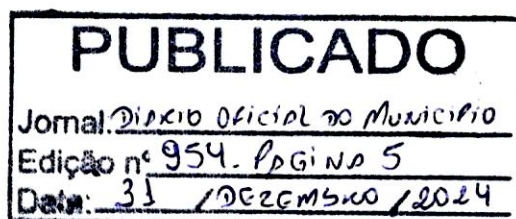 PUBLICADO
Jornal: DIÁRIO OFICIAL DO MUNICIPIO
Edição nº 954. PAGINA 5
Data: 31 / DEZEMBRO / 2024